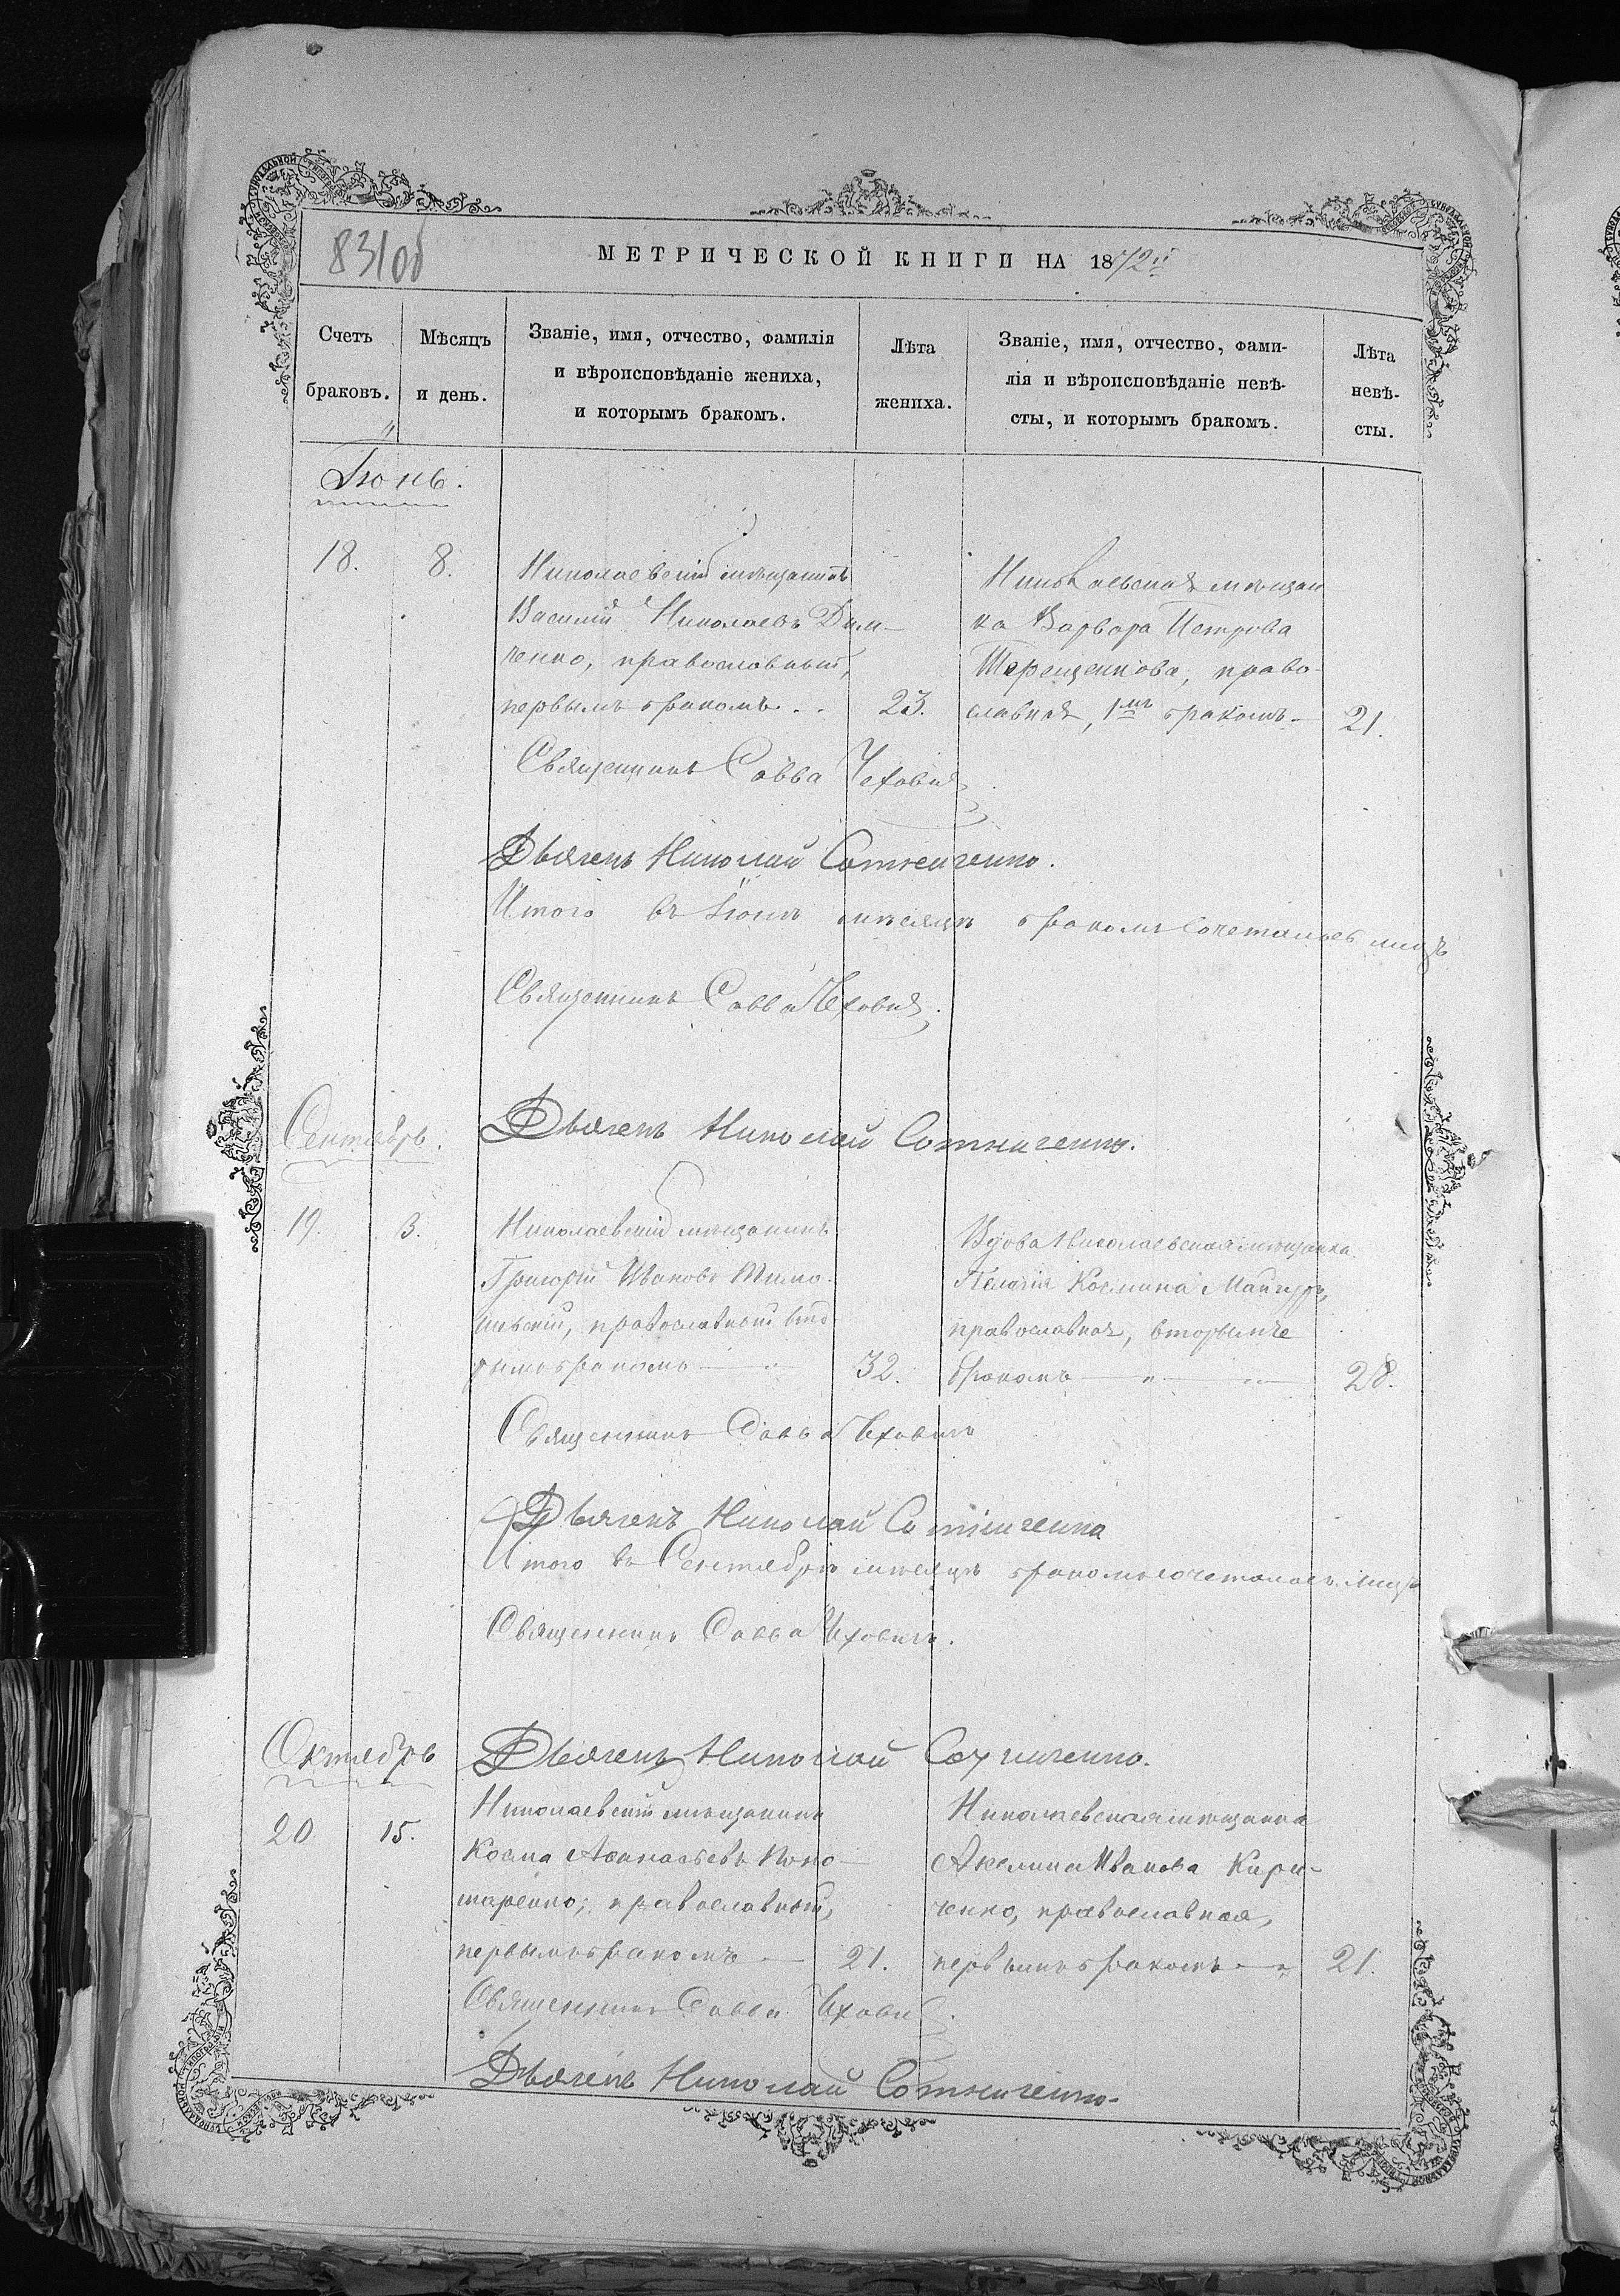 831об
МЕТРИЧЕСКОЙ КНИГИ НА 1872й
Счетъ браковъ.
Мѣсяцъ и день.
Званіе, имя, отчество, фамилія
и вѣроисповѣданіе жениха,
и которымъ бракомъ.
Лѣта жениха.
Званіе, имя, отчество, фами-
лія и вѣроисповѣданіе невѣ-
сты, и которымъ бракомъ.
Лѣта невѣ-
сты.
Іюнь.
18. 8.
Николаевскій мѣщанинъ
Василій Николаевъ Дем-
ченко, православный,
первымъ бракомъ. . 23.
Николаевская мѣщан
ка Варвара Петрова
Терещенкова, право-
славная, 1мъ бракомъ - 21.
Священникъ Савва Чехович
Дьячекъ Николай Сотниченко.
Итого въ Іюнѣ мѣсяцѣ бракомъ сочеталось лицъ
Священникъ Савва Чехович.
Сентябрь.
Дьячекъ Николай Сотниченко.
19. 3.
Николаевскій мѣщанинъ
Григорій Ивановъ Тимо-
шевскій, православный вто
рымъ бракомъ — 32.
Вдова Николаевская мѣщанка
Пелагія Космина Майгуръ,
православная, вторымъ же
бракомъ — 28.
Священникъ Савва Чеховичъ
Дьячекъ Николай Сотниченко
Итого въ Сентябрѣ мѣсяцѣ бракомъ сочеталось лицъ
Священникъ Савва Чеховичъ.
Октябрь
Дьячекъ Николай Сотниченко.
20 15.
Николаевскій мѣщанинъ
Косма Аѳанасьевъ Коно-
таренко; православный,
первымъ бракомъ — 21.
Николаевская мѣщанка
Акелина Иванова Кири-
ченко, православная,
первымъ бракомъ — 21.
Священникъ Савва Чехович.
Дьячекъ Николай Сотниченко.